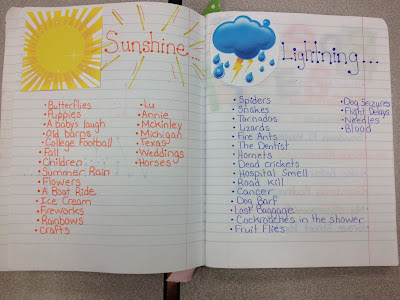 Sunshine...
• Butterflies
• Puppies
• A baby's laugh
• Old barns
• College Football
• Fall
• Children
• Summer Rain
• Flowers
• A Boat Ride
• Ice Cream
• Fireworks
• Rainbows
• Crafts
• Lu
• Annie
• McKinley
• Michigan
• Texas
• Weddings
• Horses
Lightning...
• Spiders
• Snakes
• Tornados
• Lizards
• Fire Ants
• The Dentist
• Hornets
• Dead crickets
• Hospital Smell
• Road Kill
• Cancer
• Dog Barf
• Lost Baggage
• Cockroaches in the shower
• Fruit Flies
• Dog Seizures
• Flight Delays
• Needles
• Blood